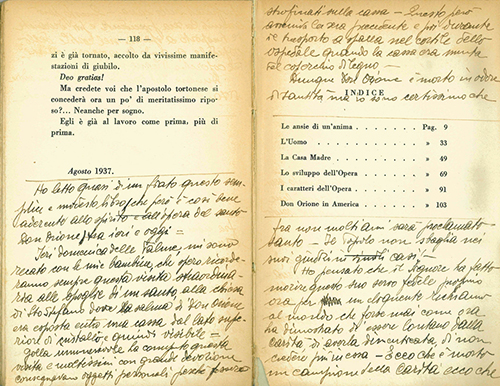 — 118 —
zi è già tornato, accolto da vivissime manife-
stazioni di giubilo.
Deo gratias!
Ma credete voi che l'apostolo tortonese si
concederà ora un po' di meritatissimo ripo-
so?... Neanche per sogno.
Egli è già al lavoro come prima, più di
prima.
Agosto 1937.
Ho letto quasi di un fiato questo sem-
plice e modesto libro che però è così bene
aderente allo spirito e all'opera del santo
Don Orione, fra ieri e oggi —
Ieri domenica delle Palme, mi sono
recato con le mie bambine, che spero ricorde-
ranno sempre questa visita straordina-
ria alle spoglie di un santo, alla chiesa
di S. Stefano dove la salma di Don Orione
era esposta entro una cassa dal lato supe-
riore di cristallo e quindi visibile —
Folla innumerevole ha compiuto questa
visita e moltissimi con grande devozione
consegnavano oggetti personali perché fossero
strofinati sulla cassa — Questo però
avveniva la sera precedente e poi durante
il trasporto a spalla nel cortile dello
ospedale quando la cassa era munita
del coperchio di legno —
Dunque Don Orione è morto in odore
di santità ma io sono certissimo che
INDICE
Le ansie di un'anima . . . . . . . . Pag. 9
L'Uomo . . . . . . . . » 33
La Casa Madre . . . . . . . . » 49
Lo sviluppo dell'Opera . . . . . . . . » 69
I caratteri dell'Opera . . . . . . . . » 91
Don Orione in America . . . . . . . . » 103
fra non molti anni sarà proclamato
santo — Il popolo non sbaglia nei
suoi giudizi in casi!
Ho pensato che il Signore ha fatto
morire questo suo servo fedele proprio
ora per un eloquente richiamo
al mondo che forse mai come ora
ha dimostrato di essere lontano dalla
carità, di averla dimenticata, di non
credere più in essa — Ecco che è morto
un campione della carità ecco che